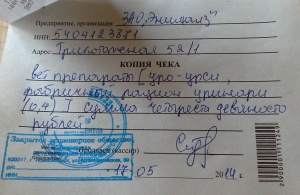 Предприятие, организация ЗАО "Энимал"
ИНН 5404183871
Адрес Трикотажная 52/1
КОПИЯ ЧЕКА
вет препараты (уро-урси,
фабричный рацион уринари
(0,4) Сумма четыреста девяносто
рублей
Закрытое акционерное общество
(кассир)
17.05 2014 г.